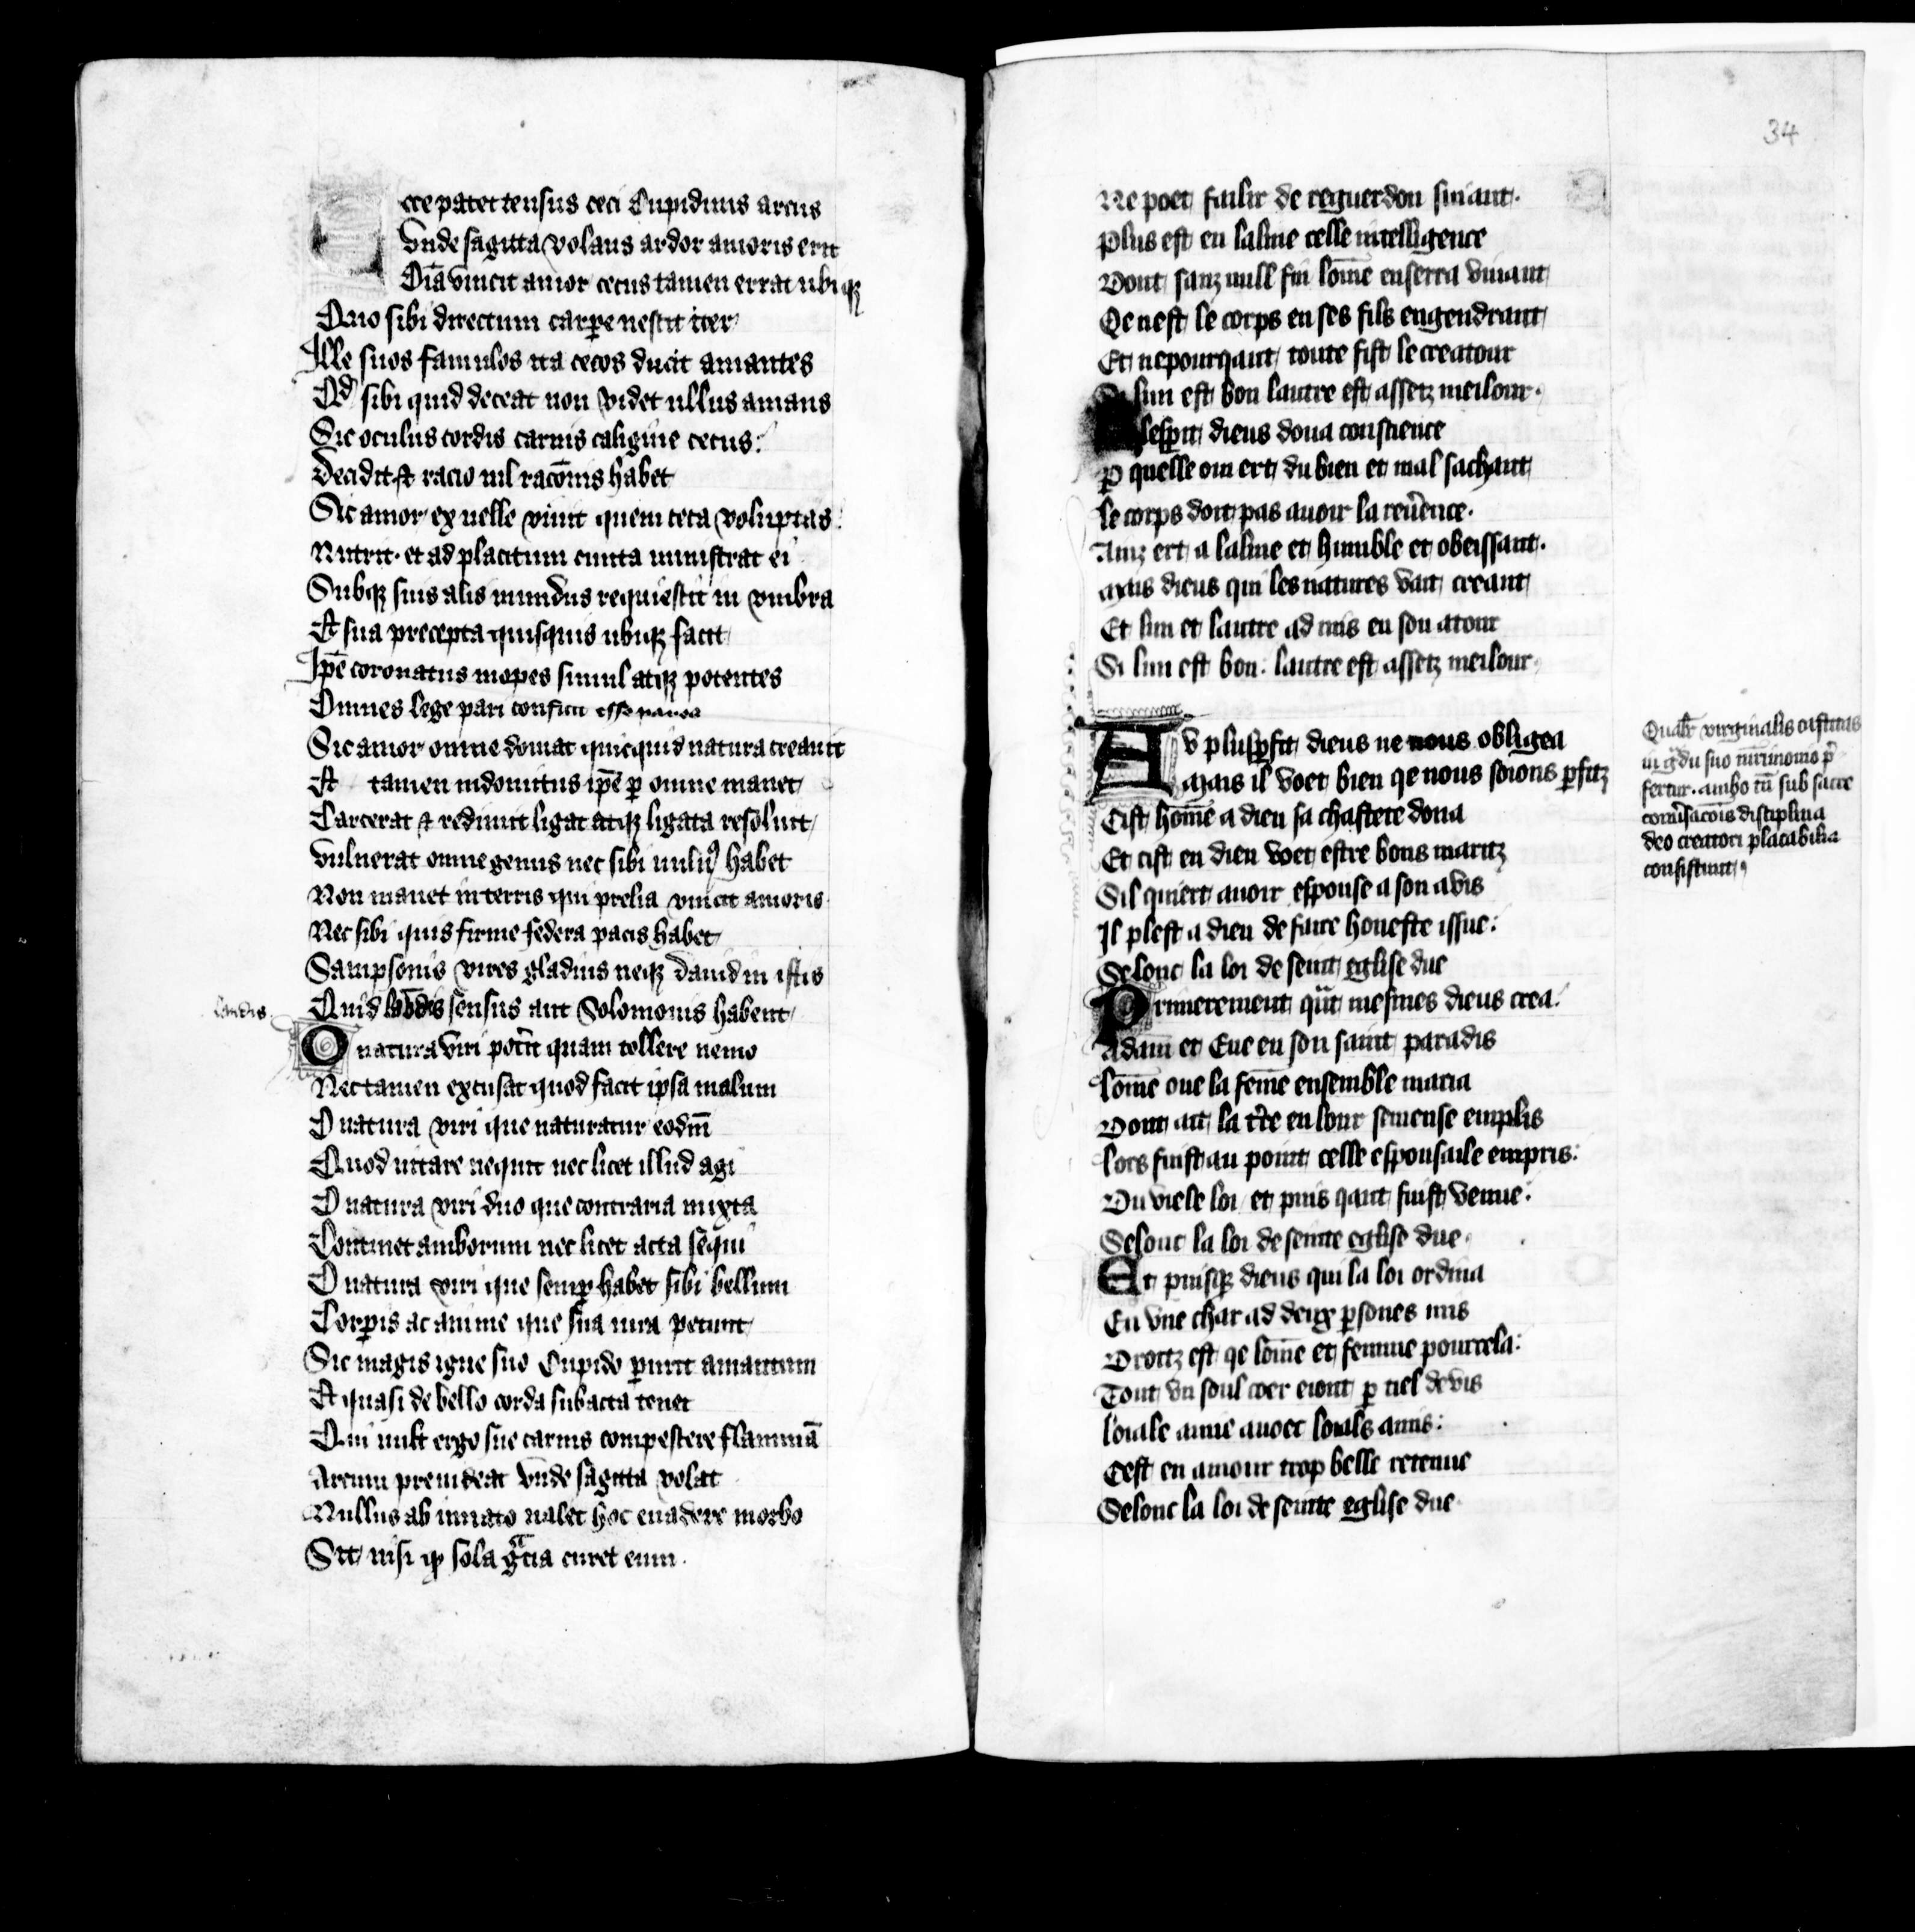 Ecce patet tensus ceci Cupidinis arcus
Unde sagitta volans ardor amoris erit
Oīa vincit amor cecus tamen errat ubiqꝫ
Quo sibi directum carꝑe nescit iter
Ille suos famulos ita cecos ducit amantes
Qd sibi quid deceat non videt ullus amans
Sic oculus cordis carnis caligine cecus:
Decidit ⁊ racio nil racōnis habet
Sic amor ex uelle viuit quem ceca voluptas:
Nutrit· et ad placitum cuncta ministrat ei
Subqꝫ suis alis mundus requiescit in vmbra
Et sua precepta quisquis ubiqꝫ facit
Ip̄e coronatus inopes simul atqꝫ potentes
Omnes lege pari conficit esse pares
Sic amor omne domat quicquid natura creauit
Et tamen indomitus ip̄e ꝑ omne manet
Carcerat ⁊ redimit ligat atqꝫ ligata resoluit
Vulnerat omne genus nec sibi vulnꝰ habet
Non manet in terris qui prelia vincit amoris
Nec sibi quis firme federa pacis habet
Sampsonis vires gladius neqꝫ Dauid in istis
laudis
Quid laudis sensus aut Solomonis habent
O natura viri pot̄it quam tollere nemo
Nec tamen excusat quod facit ipsa malum
O natura viri que naturatur eodm̄
Quod uitare nequit nec licet illud agi
O natura viri duo que contraria mixta
Continet amborum nec licet acta sequi
O natura viri que semꝑ habet sibi bellum
Corꝑis ac anime que sua iura petunt
Sic magis igne suo Cupido ꝑurit amantum
Et quasi de bello corda subacta tenet
Qui vult ergo sue carnis compescere flammā
Arcum preuideat vnde sagitta volat
Nullus ab innato valet hoc euadere morbo
Sit nisi qꝫ sola gr̄cia curet eum·
34
Ne poet failir de reguerdon suiant·
Plus est en lalme celle intelligence
Dont sanz null fin lōme en serra viuant
Qe nest le corps en ses fils engendrant
Et nepourqant toute fist le creatour
Si lun est bon lautre est assetz meilour·
A lesꝑit dieus dona conscience
ꝑ quelle om ert du bien et mal sachant
Le corps doit pas auoir la reuerence·
Ainz ert a lalme et humble et obeissant·
Mais dieus qui les natures vait creant
Et lun et lautre ad mis en son atour
Si lun est bon: lautre est assetz meilour
Av plusꝑfit dieus ne nous obligea
Mais il voet bien qe nous soions ꝑfitz
Cist homē a dieu sa chastete dona
Et cist en dieu voet estre bons maritz
Sil quiert auoir espouse a son avis
Il plest a dieu de faire honeste issue:
Selonc la loi de seint eglise due
Primerement qant mesmes dieus crea:
Adam et Eue en son saint paradis
Lōme oue la femē ensemble maria
Dont ait la t̄re en lour semense emplis
Lors fuist au point celle espousaile empris:
Du viele loi et puis qant fuist venue:
Selonc la loi de seinte eglise due
Et puisqꝫ dieus qui la loi ordina
En vne char ad deux ꝑsones mis
Droitz est qe lōme et femme pourcela:
Tout vn soul coer eiont ꝑ tiel devis
Loiale amie auoec loials amis:
Cest en amour trop belle retenue
Selonc la loi de seinte eglise due
Qualit̄ virginalis castitas
in g̊du suo mr̄imonio p̄
fertur· ambo tn̄ sub sacre
conūsacōis disciplina
deo creatori placabilia
consistunt